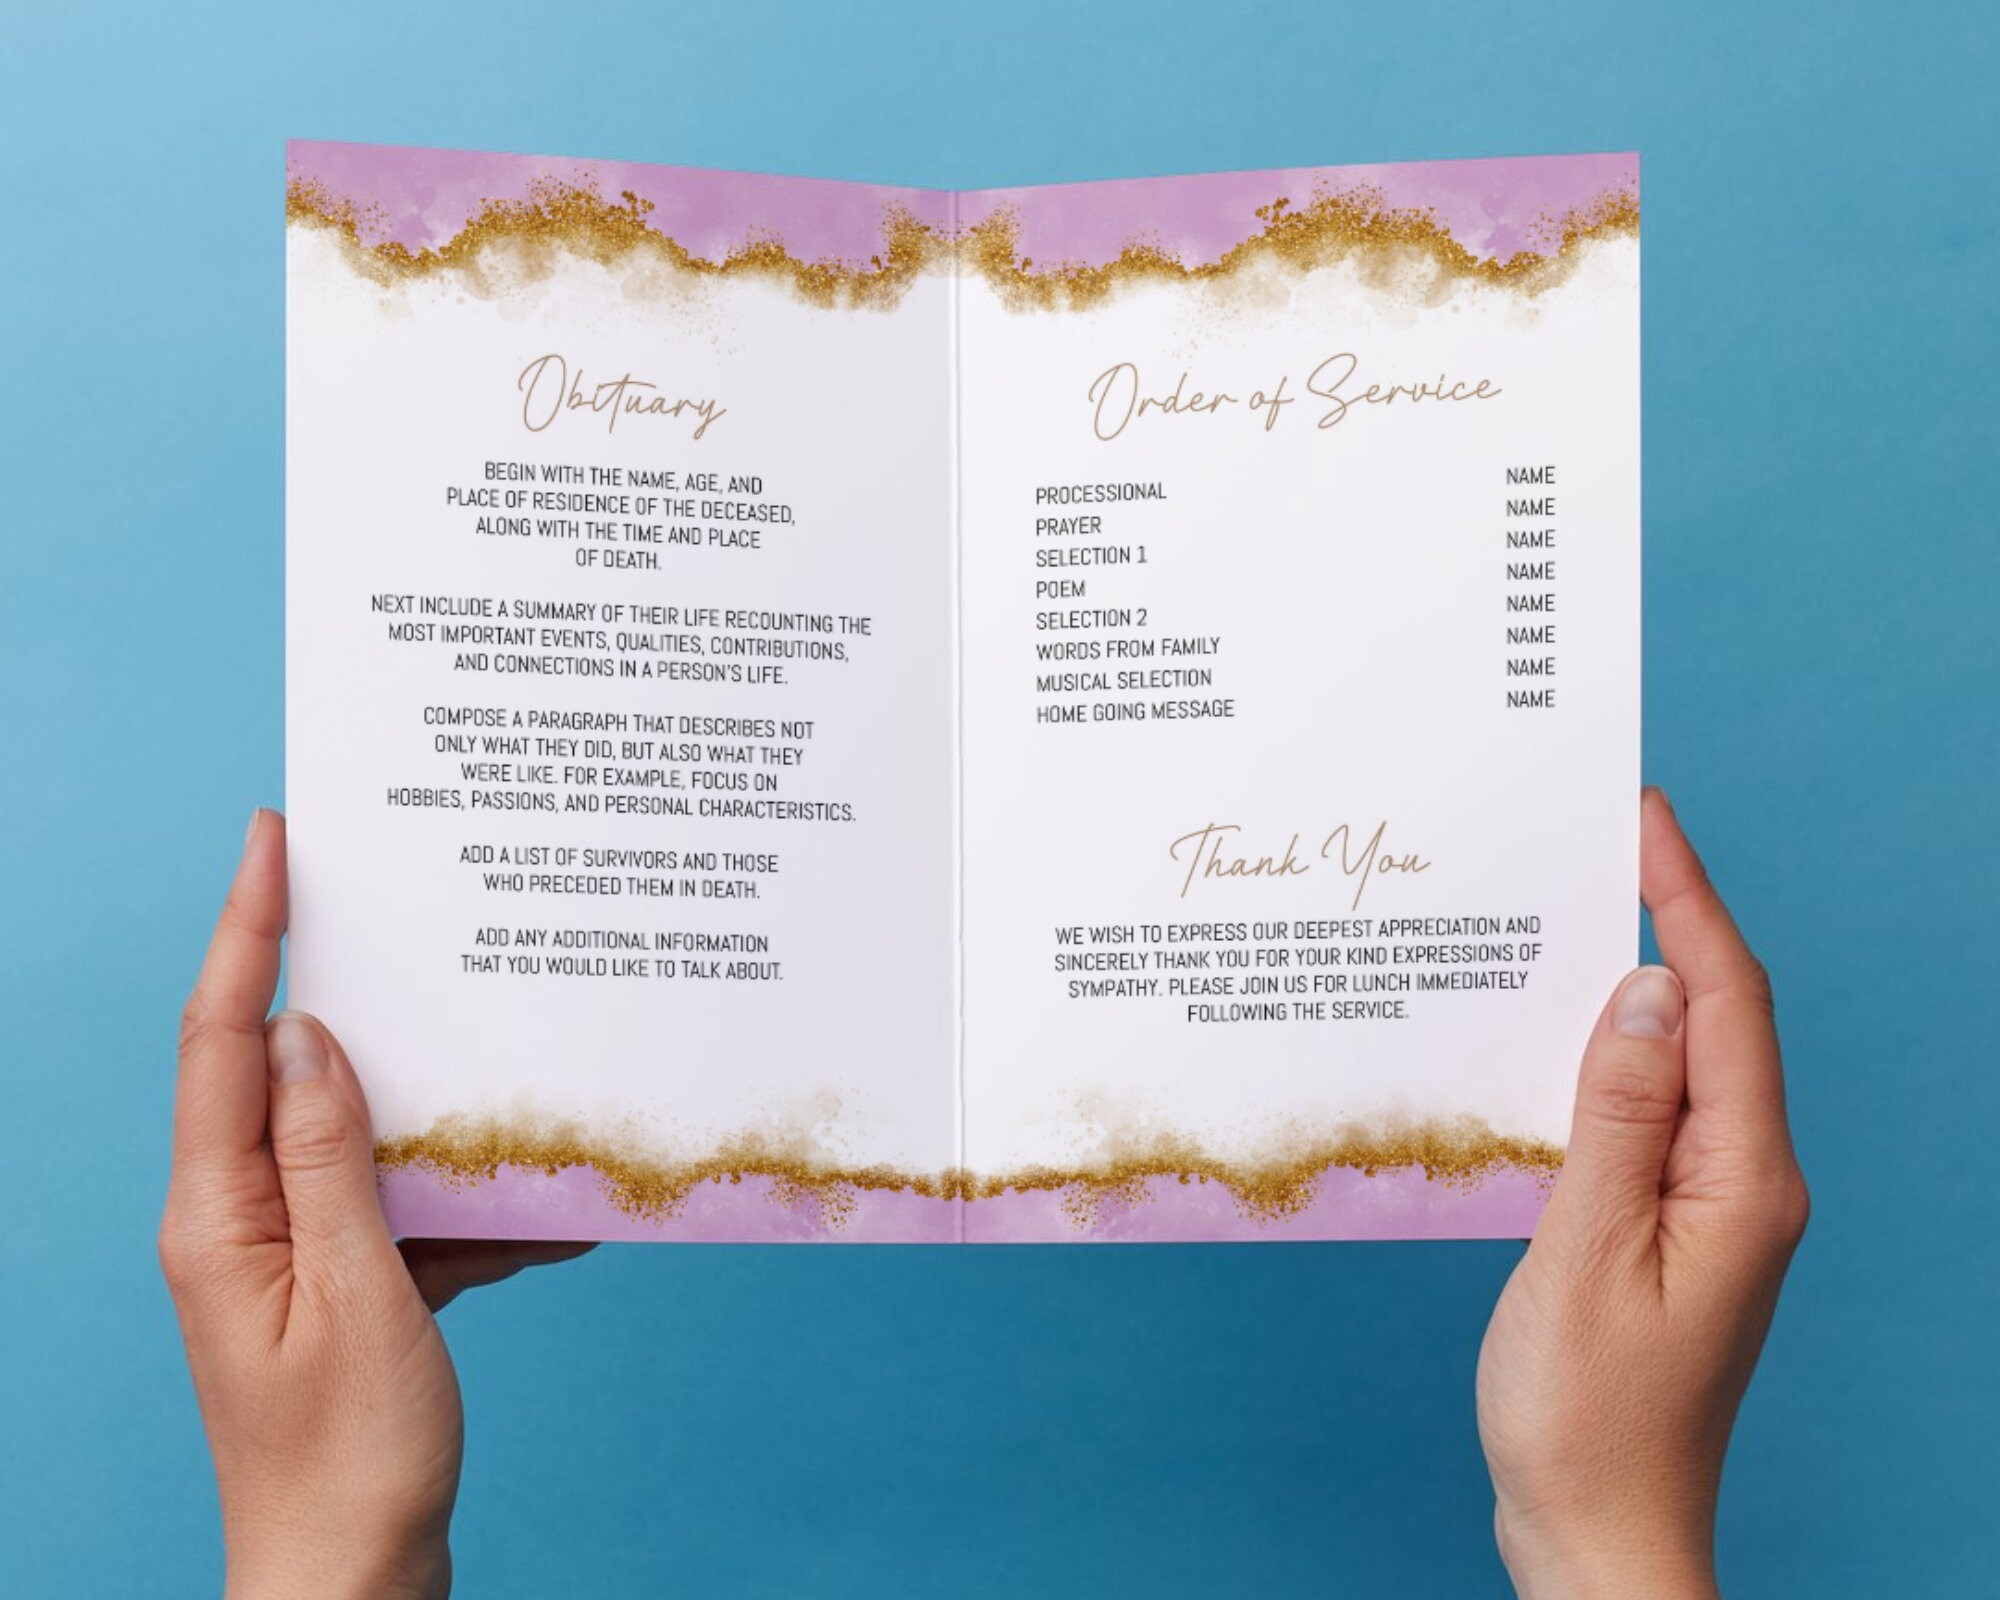 Obituary
BEGIN WITH THE NAME, AGE, AND
PLACE OF RESIDENCE OF THE DECEASED,
ALONG WITH THE TIME AND PLACE
OF DEATH.
NEXT INCLUDE A SUMMARY OF THEIR LIFE RECOUNTING THE
MOST IMPORTANT EVENTS, QUALITIES, CONTRIBUTIONS,
AND CONNECTIONS IN A PERSON'S LIFE.
COMPOSE A PARAGRAPH THAT DESCRIBES NOT
ONLY WHAT THEY DID, BUT ALSO WHAT THEY
WERE LIKE. FOR EXAMPLE, FOCUS ON
HOBBIES, PASSIONS, AND PERSONAL CHARACTERISTICS.
ADD A LIST OF SURVIVORS AND THOSE
WHO PRECEDED THEM IN DEATH.
ADD ANY ADDITIONAL INFORMATION
THAT YOU WOULD LIKE TO TALK ABOUT.
Order of Service
PROCESSIONAL NAME
PRAYER NAME
SELECTION 1 NAME
POEM NAME
SELECTION 2 NAME
WORDS FROM FAMILY NAME
MUSICAL SELECTION NAME
HOME GOING MESSAGE NAME
Thank You
WE WISH TO EXPRESS OUR DEEPEST APPRECIATION AND
SINCERELY THANK YOU FOR YOUR KIND EXPRESSIONS OF
SYMPATHY. PLEASE JOIN US FOR LUNCH IMMEDIATELY
FOLLOWING THE SERVICE.